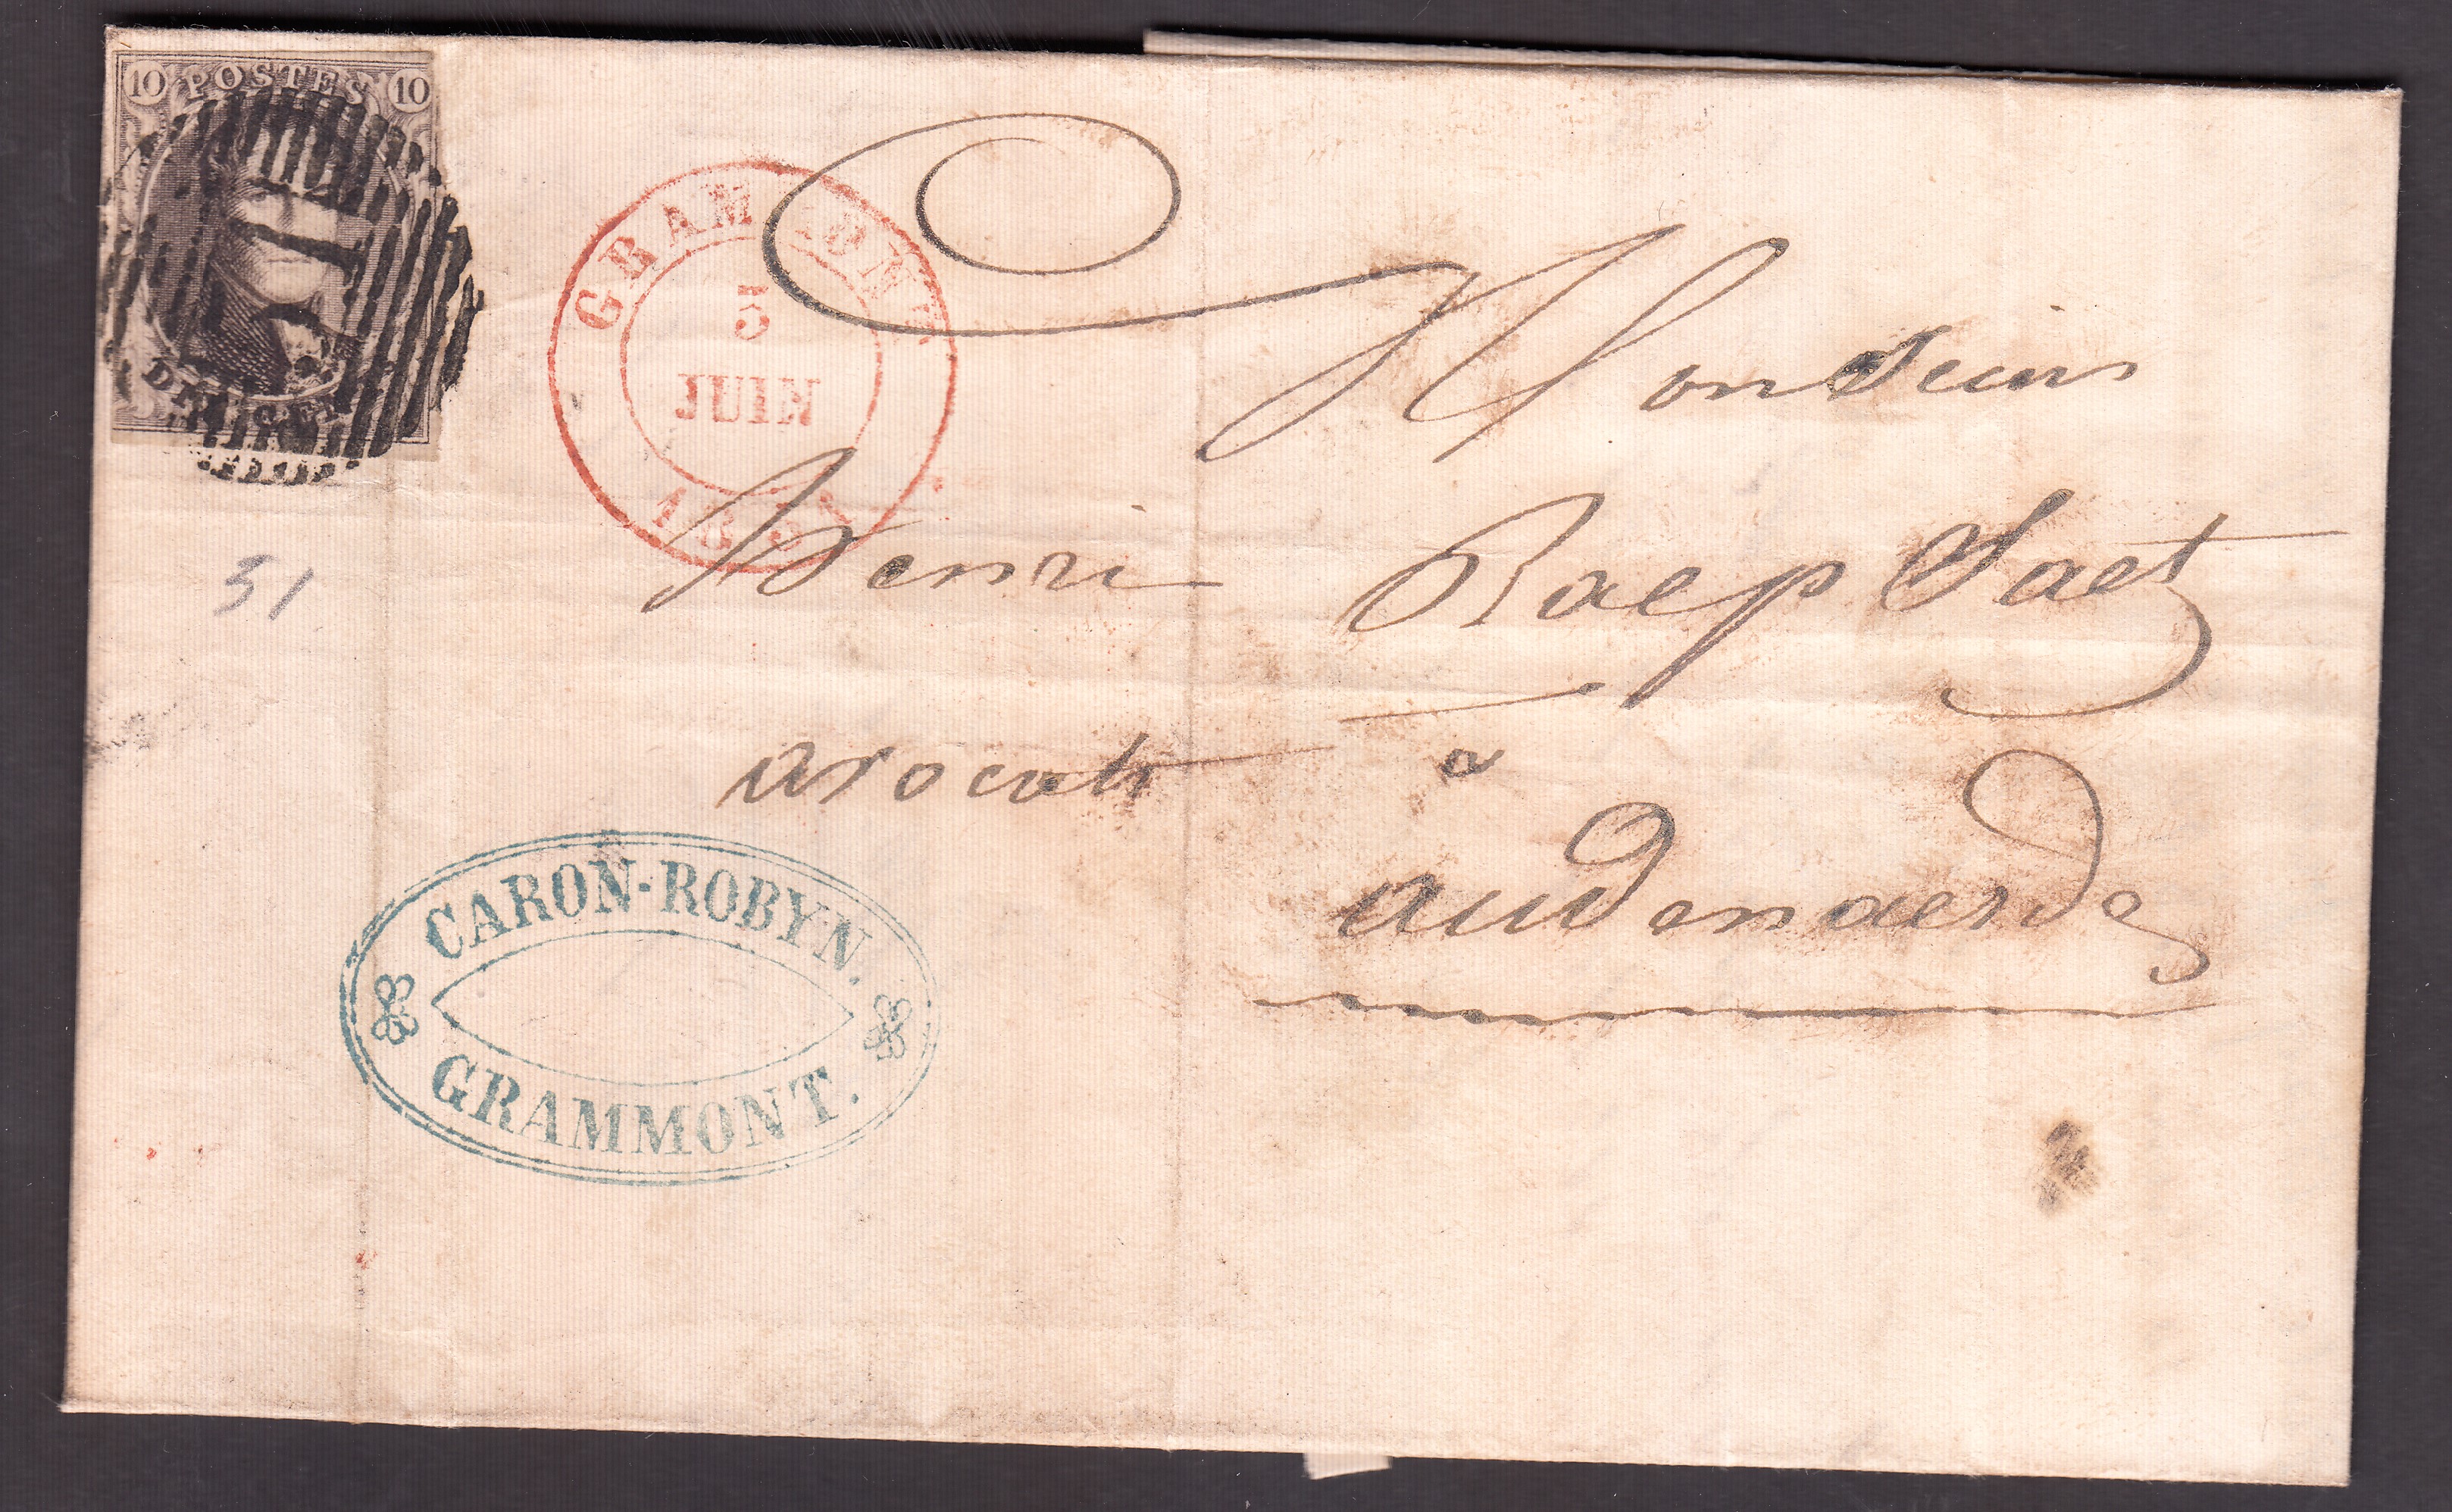 10 POSTES 10
DIX CEN
GRAMMONT
5
JUIN
1851
Monsieur
Henri Raepsaet
avocat à
audenaerde
51
CARON-ROBYN.
GRAMMONT.